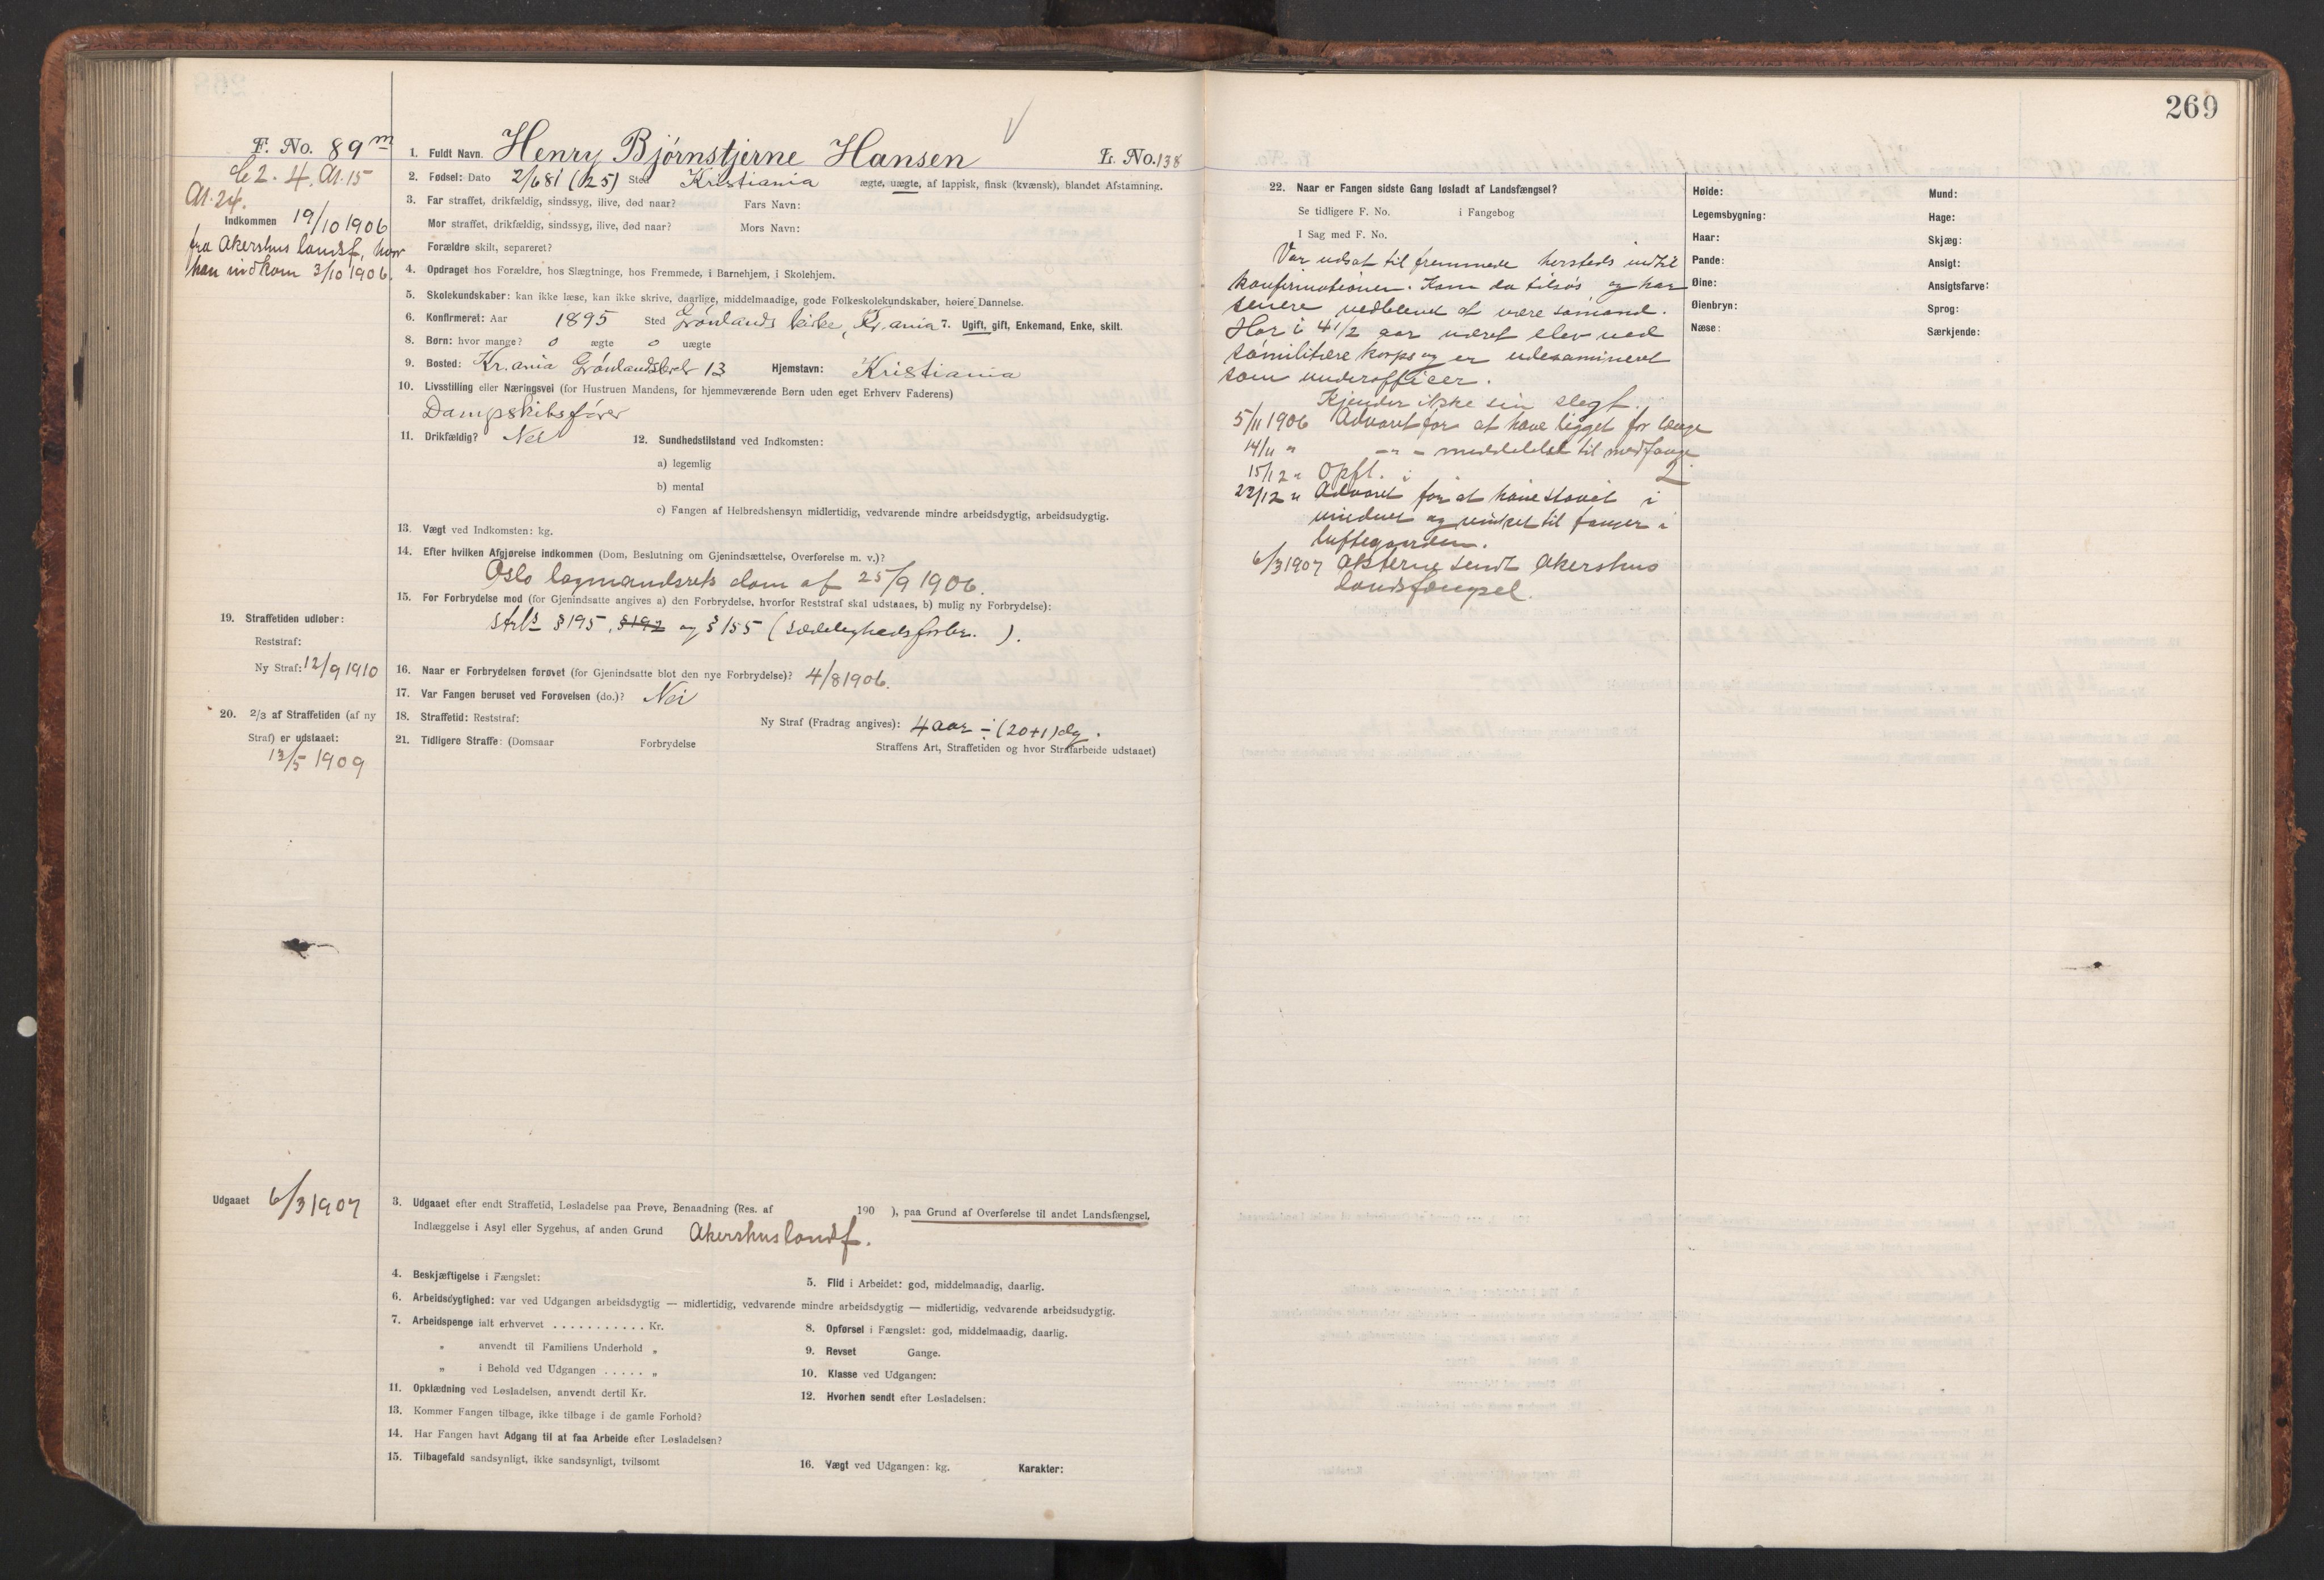 269
F. No. 89 m
Cl 2. 4. At. 15
At. 24.
Indkommen 19/10 1906
fra Akershus landsf., hvor
han indkom 3/10 1906.
1. Fuldt Navn. Henry Bjørnstjerne Hansen L. No. 138
2. Fødsel: Dato 2/6 81 (125) Sted Kristiania ægte, uægte, af lappisk, finsk (kvænsk), blandet Afstamning.
3. Far straffet, drikfældig, sindssyg, ilive, død naar? Fars Navn:
Mor straffet, drikfældig, sindssyg, ilive, død naar? Mors Navn:
Forældre skilt, separeret?
4. Opdraget hos Forældre, hos Slægtninge, hos Fremmede, i Barnehjem, i Skolehjem.
5. Skolekundskaber: kan ikke læse, kan ikke skrive, daarlige, middelmaadige, gode Folkeskolekundskaber, høiere Dannelse.
6. Konfirmeret: Aar 1895 Sted Grønlands kirke, Kr.ania 7. Ugift, gift, Enkemand, Enke, skilt.
8. Børn: hvor mange? 0 ægte 0 uægte
9. Bosted: Kr.ania Grønlandsleret 13 Hjemstavn: Kristiania
10. Livsstilling eller Næringsvei (for Hustruen Mandens, for hjemmeværende Børn uden eget Erhverv Faderens)
Dampskibsfører
11. Drikfældig? Nei 12. Sundhedstilstand ved Indkomsten:
a) legemlig
b) mental
c) Fangen af Helbredshensyn midlertidig, vedvarende mindre arbeidsdygtig, arbeidsudygtig.
13. Vægt ved Indkomsten: kg.
14. Efter hvilken Afgjørelse indkommen (Dom, Beslutning om Gjenindsættelse, Overførelse m. v.)?
Oslo lagmandsrets dom af 25/9 1906.
15. For Forbrydelse mod (for Gjenindsatte angives a) den Forbrydelse, hvorfor Reststraf skal udstaaes, b) mulig ny Forbrydelse):
Strls § 195, § 192 og § 155 (sædelighedsforbr. ).
19. Straffetiden udløber:
Reststraf:
Ny Straf: 12/9 1910
16. Naar er Forbrydelsen forøvet (for Gjenindsatte blot den nye Forbrydelse)? 4/8 1906.
17. Var Fangen beruset ved Forøvelsen (do.)? Nei
20. 2/3 af Straffetiden (af ny
Straf) er udstaaet:
13/5 1909
18. Straffetid: Reststraf: Ny Straf (Fradrag angives): 4 aar ÷ (20+1) dg.
21. Tidligere Straffe: (Domsaar Forbrydelse Straffens Art, Straffetiden og hvor Strafarbeide udstaaet)
Udgaaet 6/3 1907
3. Udgaaet efter endt Straffetid, Løsladelse paa Prøve, Benaadning (Res. af 190 ), paa Grund af Overførelse til andet Landsfængsel,
Indlæggelse i Asyl eller Sygehus, af anden Grund Akershus landsf.
4. Beskjæftigelse i Fængslet: 5. Flid i Arbeidet: god, middelmaadig, daarlig.
6. Arbeidsdygtighed: var ved Udgangen arbeidsdygtig — midlertidig, vedvarende mindre arbeidsdygtig — midlertidig, vedvarende arbeidsudygtig.
7. Arbeidspenge ialt erhvervet . . . . . . . . . . . Kr. 8. Opførsel i Fængslet: god, middelmaadig, daarlig.
" anvendt til Familiens Underhold " 9. Revset Gange.
" i Behold ved Udgangen . . . . . " 10. Klasse ved Udgangen:
11. Opklædning ved Løsladelsen, anvendt dertil Kr. 12. Hvorhen sendt efter Løsladelsen:
13. Kommer Fangen tilbage, ikke tilbage i de gamle Forhold?
14. Har Fangen havt Adgang til at faa Arbeide efter Løsladelsen?
15. Tilbagefald sandsynligt, ikke sandsynligt, tvilsomt 16. Vægt ved Udgangen: kg. Karakter:
22. Naar er Fangen sidste Gang løsladt af Landsfængsel?
Se tidligere F. No. i Fangebog
I Sag med F. No.
Var udsat til fremmede hersteds indtil
konfirmationen. Kom da tilsøs og har
senere vedblevet at være sømand.
Har i 4 1/2 aar været elev ved
sømilitære korps og er udexamineret
som underofficer.
Kjender ikke sin slegt.
5/11 1906 Advaret for at have ligget for længe
14/11 " — " — meddelelse til medfange
15/12 " Opfl. i 2
22/12 " Advaret for at have staaet i
vinduet og vinket til fanger i
luftegaarden.
6/3 1907 Akterne sendt Akershus
landsfængsel.
Høide: Mund:
Legemsbygning: Hage:
Haar: Skjæg:
Pande: Ansigt:
Øine: Ansigtsfarve:
Øienbryn: Sprog:
Næse: Særkjende: